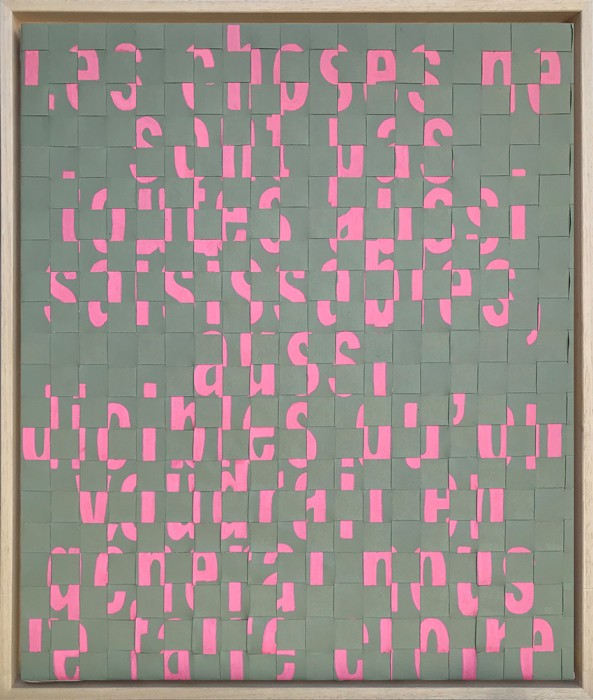 les choses ne
sont pas
toutes aussi
saisissables,
aussi
dicibles qu'on
voudrait en
général nous
le faire croire